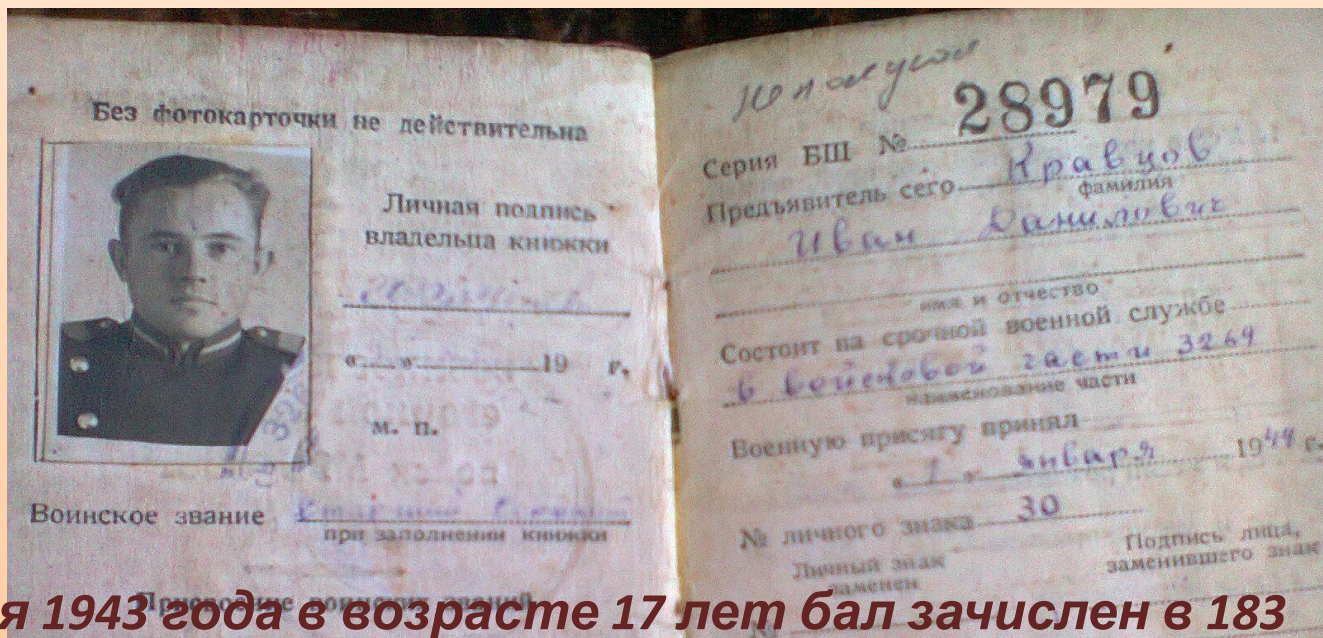 Без фотокарточки не действительна
Личная подпись
владельца книжки
«  » 19 г.
м. п.
Воинское звание Старший
при заполнении книжки
Присвоение воинских званий
28979
Серия БШ №
Предъявитель сего Кравцов
фамилия
Иван Данилович
имя и отчество
Состоит на срочной военной службе
в войсковой части 3269
наименование части
Военную присягу принял
« 1 » января 1944 г.
№ личного знака 30
Личный знак
заменен
Подпись лица,
заменившего знак
№
я 1943 года в возрасте 17 лет бал зачислен в 183